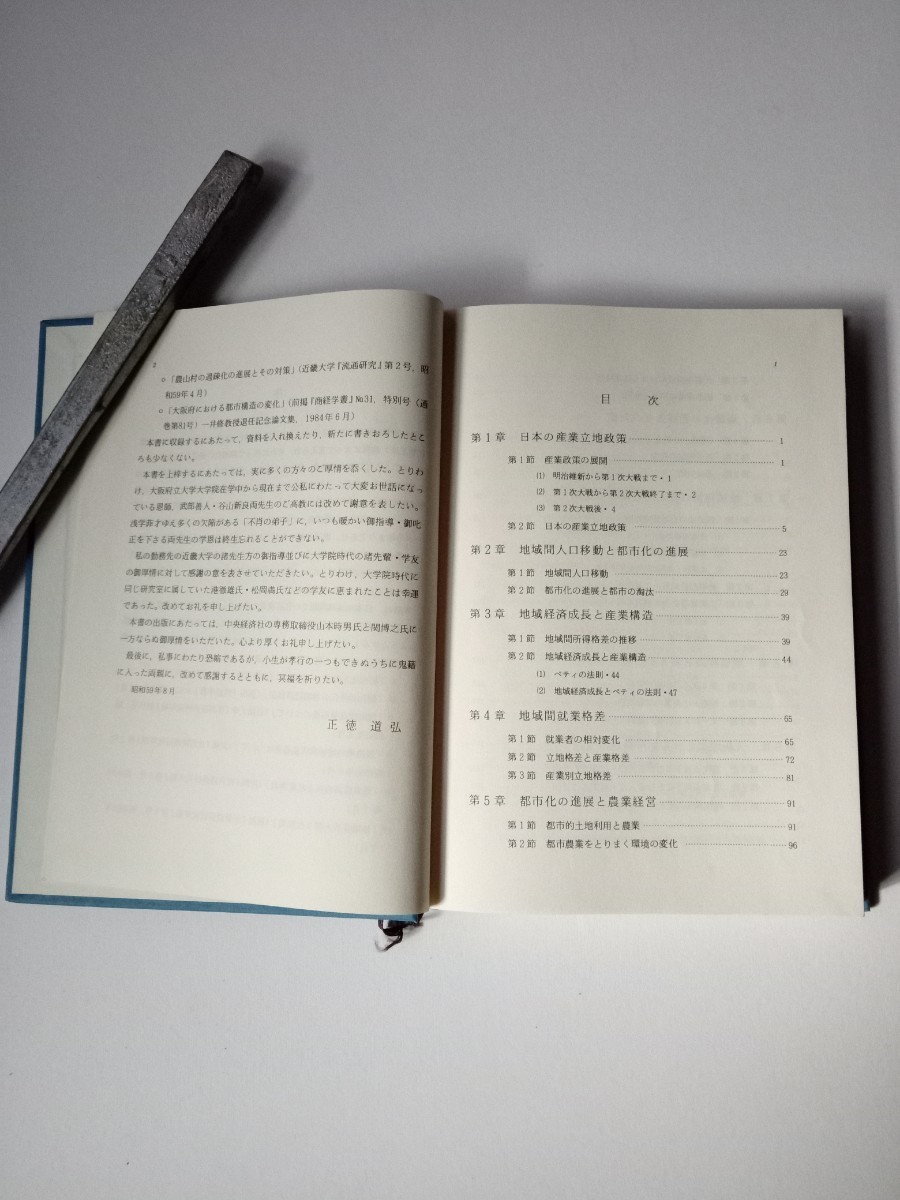 2
○「農山村の過疎化の進展とその対策」(近畿大学『流通研究』第2号, 昭
和59年4月)
○「大阪府における都市構造の変化」(前掲『商経学叢』No.31, 特別号(通
巻第81号)―井修教授退任記念論文集, 1984年6月)
本書に収録するにあたって, 資料を入れ換えたり, 新たに書きおろしたとこ
ろも少なくない。
本書を上梓するにあたっては, 実に多くの方々のご厚情を忝くした。とりわ
け, 大阪府立大学大学院在学中から現在まで公私にわたって大変お世話になっ
ている恩師, 武部善人・谷山新良両先生のご高教には改めて謝意を表したい。
浅学菲才ゆえ多くの欠陥がある「不肖の弟子」に, いつも暖かい御指導・御叱
正を下さる両先生の学恩は終生忘れることができない。
私の勤務先の近畿大学の諸先生方の御指導並びに大学院時代の諸先輩・学友
の御厚情に対して感謝の意を表させていただきたい。とりわけ, 大学院時代に
同じ研究室に属していた港徹雄氏・松岡勇氏などの学友に恵まれたことは幸運
であった。改めてお礼を申し上げたい。
本書の出版にあたっては, 中央経済社の専務取締役山本時男氏と関博之氏に
一方ならぬ御厚情をいただいた。心より厚くお礼申し上げたい。
最後に, 私事にわたり恐縮であるが, 小生が孝行の一つもできぬうちに鬼籍
に入った両親に, 改めて感謝するとともに, 冥福を祈りたい。
昭和59年8月
正徳 道弘
1
目 次
第1章 日本の産業立地政策 1
第1節 産業政策の展開 1
(1) 明治維新から第1次大戦まで・1
(2) 第1次大戦から第2次大戦終了まで・2
(3) 第2次大戦後・4
第2節 日本の産業立地政策 5
第2章 地域間人口移動と都市化の進展 23
第1節 地域間人口移動 23
第2節 都市化の進展と都市の淘汰 29
第3章 地域経済成長と産業構造 39
第1節 地域間所得格差の推移 39
第2節 地域経済成長と産業構造 44
(1) ペティの法則・44
(2) 地域経済成長とペティの法則・47
第4章 地域間就業格差 65
第1節 就業者の相対変化 65
第2節 立地格差と産業格差 72
第3節 産業別立地格差 81
第5章 都市化の進展と農業経営 91
第1節 都市的土地利用と農業 91
第2節 都市農業をとりまく環境の変化 96